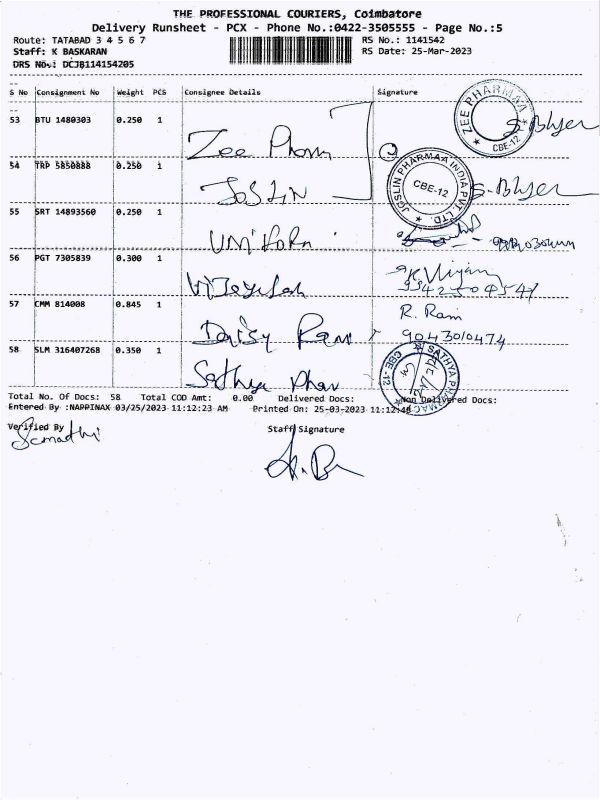 THE PROFESSIONAL COURIERS, Coimbatore
Delivery Runsheet - PCX - Phone No.:0422-3505555 - Page No.:5
Route: TATABAD 3 4 5 6 7
RS No.: 1141542
Staff: K BASKARAN
RS Date: 25-Mar-2023
DRS No.: DCJB114154205
S No Consignment No Weight PCS Consignee Details Signature
53 BTU 1480303 0.250 1 Zee Pharm
ZEE PHARMAA CBE-12
54 TRP 5850888 0.250 1 JOSLIN
JOSLIN PHARMAA INDIA PVT. LTD CBE-12
55 SRT 14893560 0.250 1
56 PGT 7305839 0.300 1
57 CMM 814008 0.845 1 Daisy Ram R. Ram
9043010474
58 SLM 316407268 0.350 1 Sathya Phar
SATHYA PHARMAC CBE-12
Total No. Of Docs: 58 Total COD Amt: 0.00 Delivered Docs: Non Delivered Docs:
Entered By :NAPPINAX 03/25/2023 11:12:23 AM Printed On: 25-03-2023 11:12:40
Verified By Staff Signature